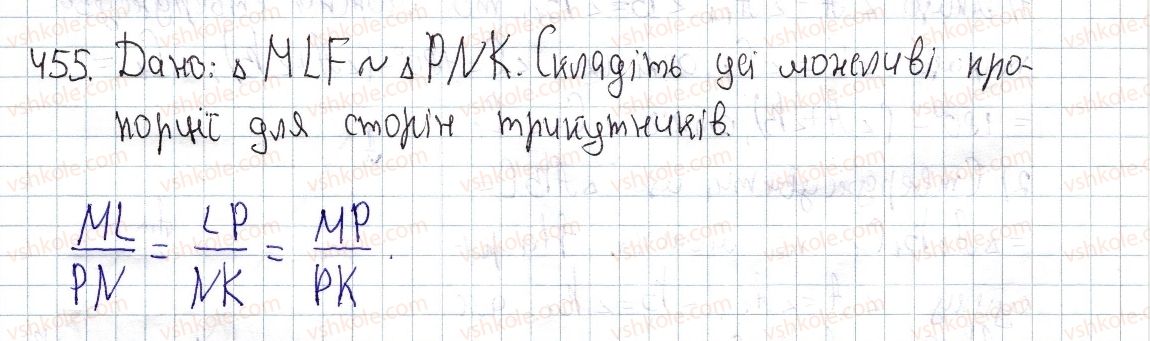 455. Дано: △ MLF ~ △ PNK. Складіть усі можливі про-
порції для сторін трикутників.
ML/PN = LP/NK = MP/PK.